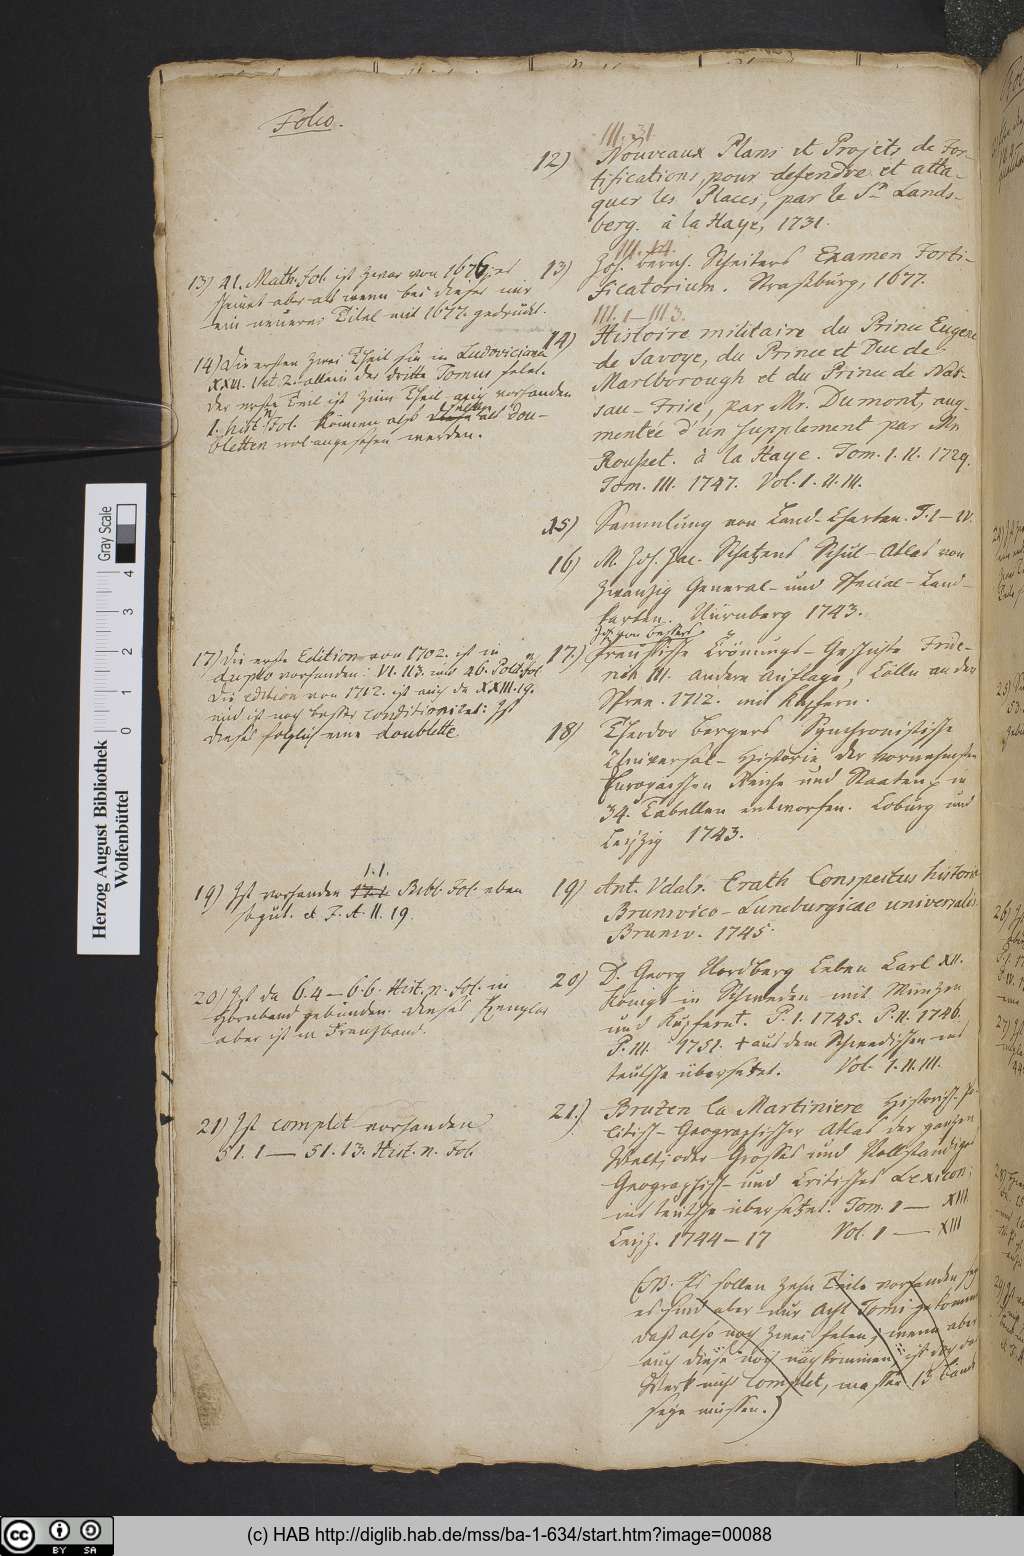 Folio.
III. 31.
12) Nouveaux Plans et Projets de For-
tifications, pour defendre et atta-
quer les Places, par le Sr. Lands-
berg. à la Haye, 1731.
13) 41. Math. Fol. ist zwar von 1676,
scheinet aber als wenn bei dieser nur
ein neuerer Titel mit 1677. gedruckt.
III. 14.
13) Joh. Bernh. Scheiters Examen Forti-
ficatorium. Straßburg, 1677.
14) Die ersten zwei Theil sin in Ludoviciana
XXII. 1 et 2. allein der dritte Tomus felet.
Der erste Teil ist zum Theil vorhanden
1. hist. Fol. Können also als Dou-
bletten wol angesehen werden.
III. 1 — III. 3.
14) Histoire militaire du Prince Eugene
de Savoye, du Prince et Duc de
Marlborough et du Prince de Nas-
sau-Frise, par Mr. Dumont, aug-
mentée d'un supplement par Mr.
Rousset. à la Haye. Tom. I. II. 1729.
Tom. III. 1747. Vol. I. II. III.
15) Sammlung von Land-Charten. T. I — IV.
16) M. Joh. Jac. Schatzens Schul-Atlas von
zwanzig General- und Special-Land-
karten. Nürnberg 1743.
17) Die erste Edition von 1702. ist in
duplo vorhanden: VI. 113. und 46. Polit. Fol.
Die edition von 1712. ist auch da XXIII. 19.
und ist noch besser conditioniret: Ist
dieses folglich eine doublette.
Joh. von Besser
17.) Preussische Crönungs-Geschichte Fride-
rich III. andere Auflage, Cölln an der
Spree. 1712. mit Kupfern.
18) Theodor Bergers Synchronistische
Universal-Historie der vornehmsten
Europaeischen Reiche und Staaten, in
34. Tabellen entworfen. Coburg und
Leipzig 1743.
19) Ist vorhanden 1.1. Bibl. Fol. eben
so gut. et Z. A. II. 19.
19) Ant. Udalr. Erath Conspectus historiae
Brunsvico-Luneburgicae universalis
Brunsv. 1745.
20) Ist da 6.4 — 6.6. Hist. n. Fol. in
Hornband gebunden. Dieses Exemplar
aber ist in Franzband.
20) D. Georg Nordberg Leben Carl XII.
Königs in Schweden mit Münzen
und Kupfern. P. I. 1745. P. II. 1746.
P. III. 1751. + aus dem Schwedischen ins
teutsche übersetzt. Vol. I. II. III.
21) Ist complet vorhanden
51. 1 — 51. 13. Hist. n. Fol.
21.) Bruzen la Martiniere Historisch-Po-
litisch-Geographischer Atlas der ganzen
Welt; oder Grosses und Vollständiges
Geographisch- und Critisches Lexicon;
ins teutsche übersetzt. Tom. I — XIII.
Leipz. 1744 — 17 Vol. I — XIII
(NB. Es sollen zehn Teile vorhanden seyn
es sind aber nur acht Tomi gekommen
daß also noch zwei felen; wenn aber
auch diese noch nachkommen, ist doch das
Werk nicht complet, masser 13 Bände
seyn müssen.)
Herzog August Bibliothek
Wolfenbüttel
Gray Scale
0 1 2 3 4
cc BY SA
(c) HAB http://diglib.hab.de/mss/ba-1-634/start.htm?image=00088